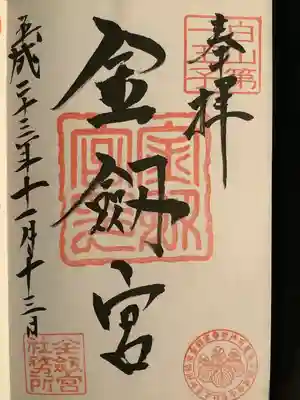 奉拝
白山第一王子
金劔宮
平成二十三年十一月十三日
金劔宮社務所